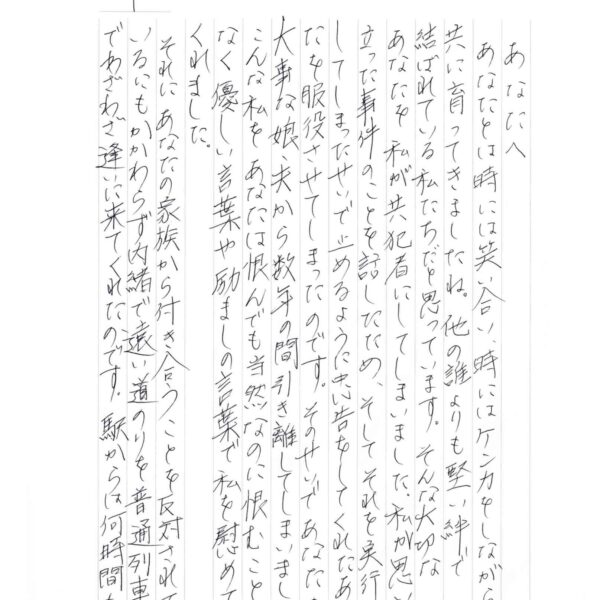 あなたへ
あなたとは時には笑い合い、時にはケンカをしながら
共に育ってきましたね。他の誰よりも堅い絆で
結ばれている私たちだと思っています。そんな大切な
あなたを私が共犯者にしてしまいました。私が思い
立った事件のことを話したため、そしてそれを実行
してしまったせいで止めるように忠告をしてくれたあ
たを服役させてしまったのです。そのせいであなた
大事な娘、夫から数年の間引き離してしまいまし
こんな私をあなたは恨んでも当然なのに恨むこと
なく優しい言葉や励ましの言葉で私を慰めて
くれました。
それにあなたの家族から付き合うことを反対されて
いるにもかかわらず内緒で遠い道のりを普通列車
でわざわざ逢いに来てくれたのです。駅からは何時間